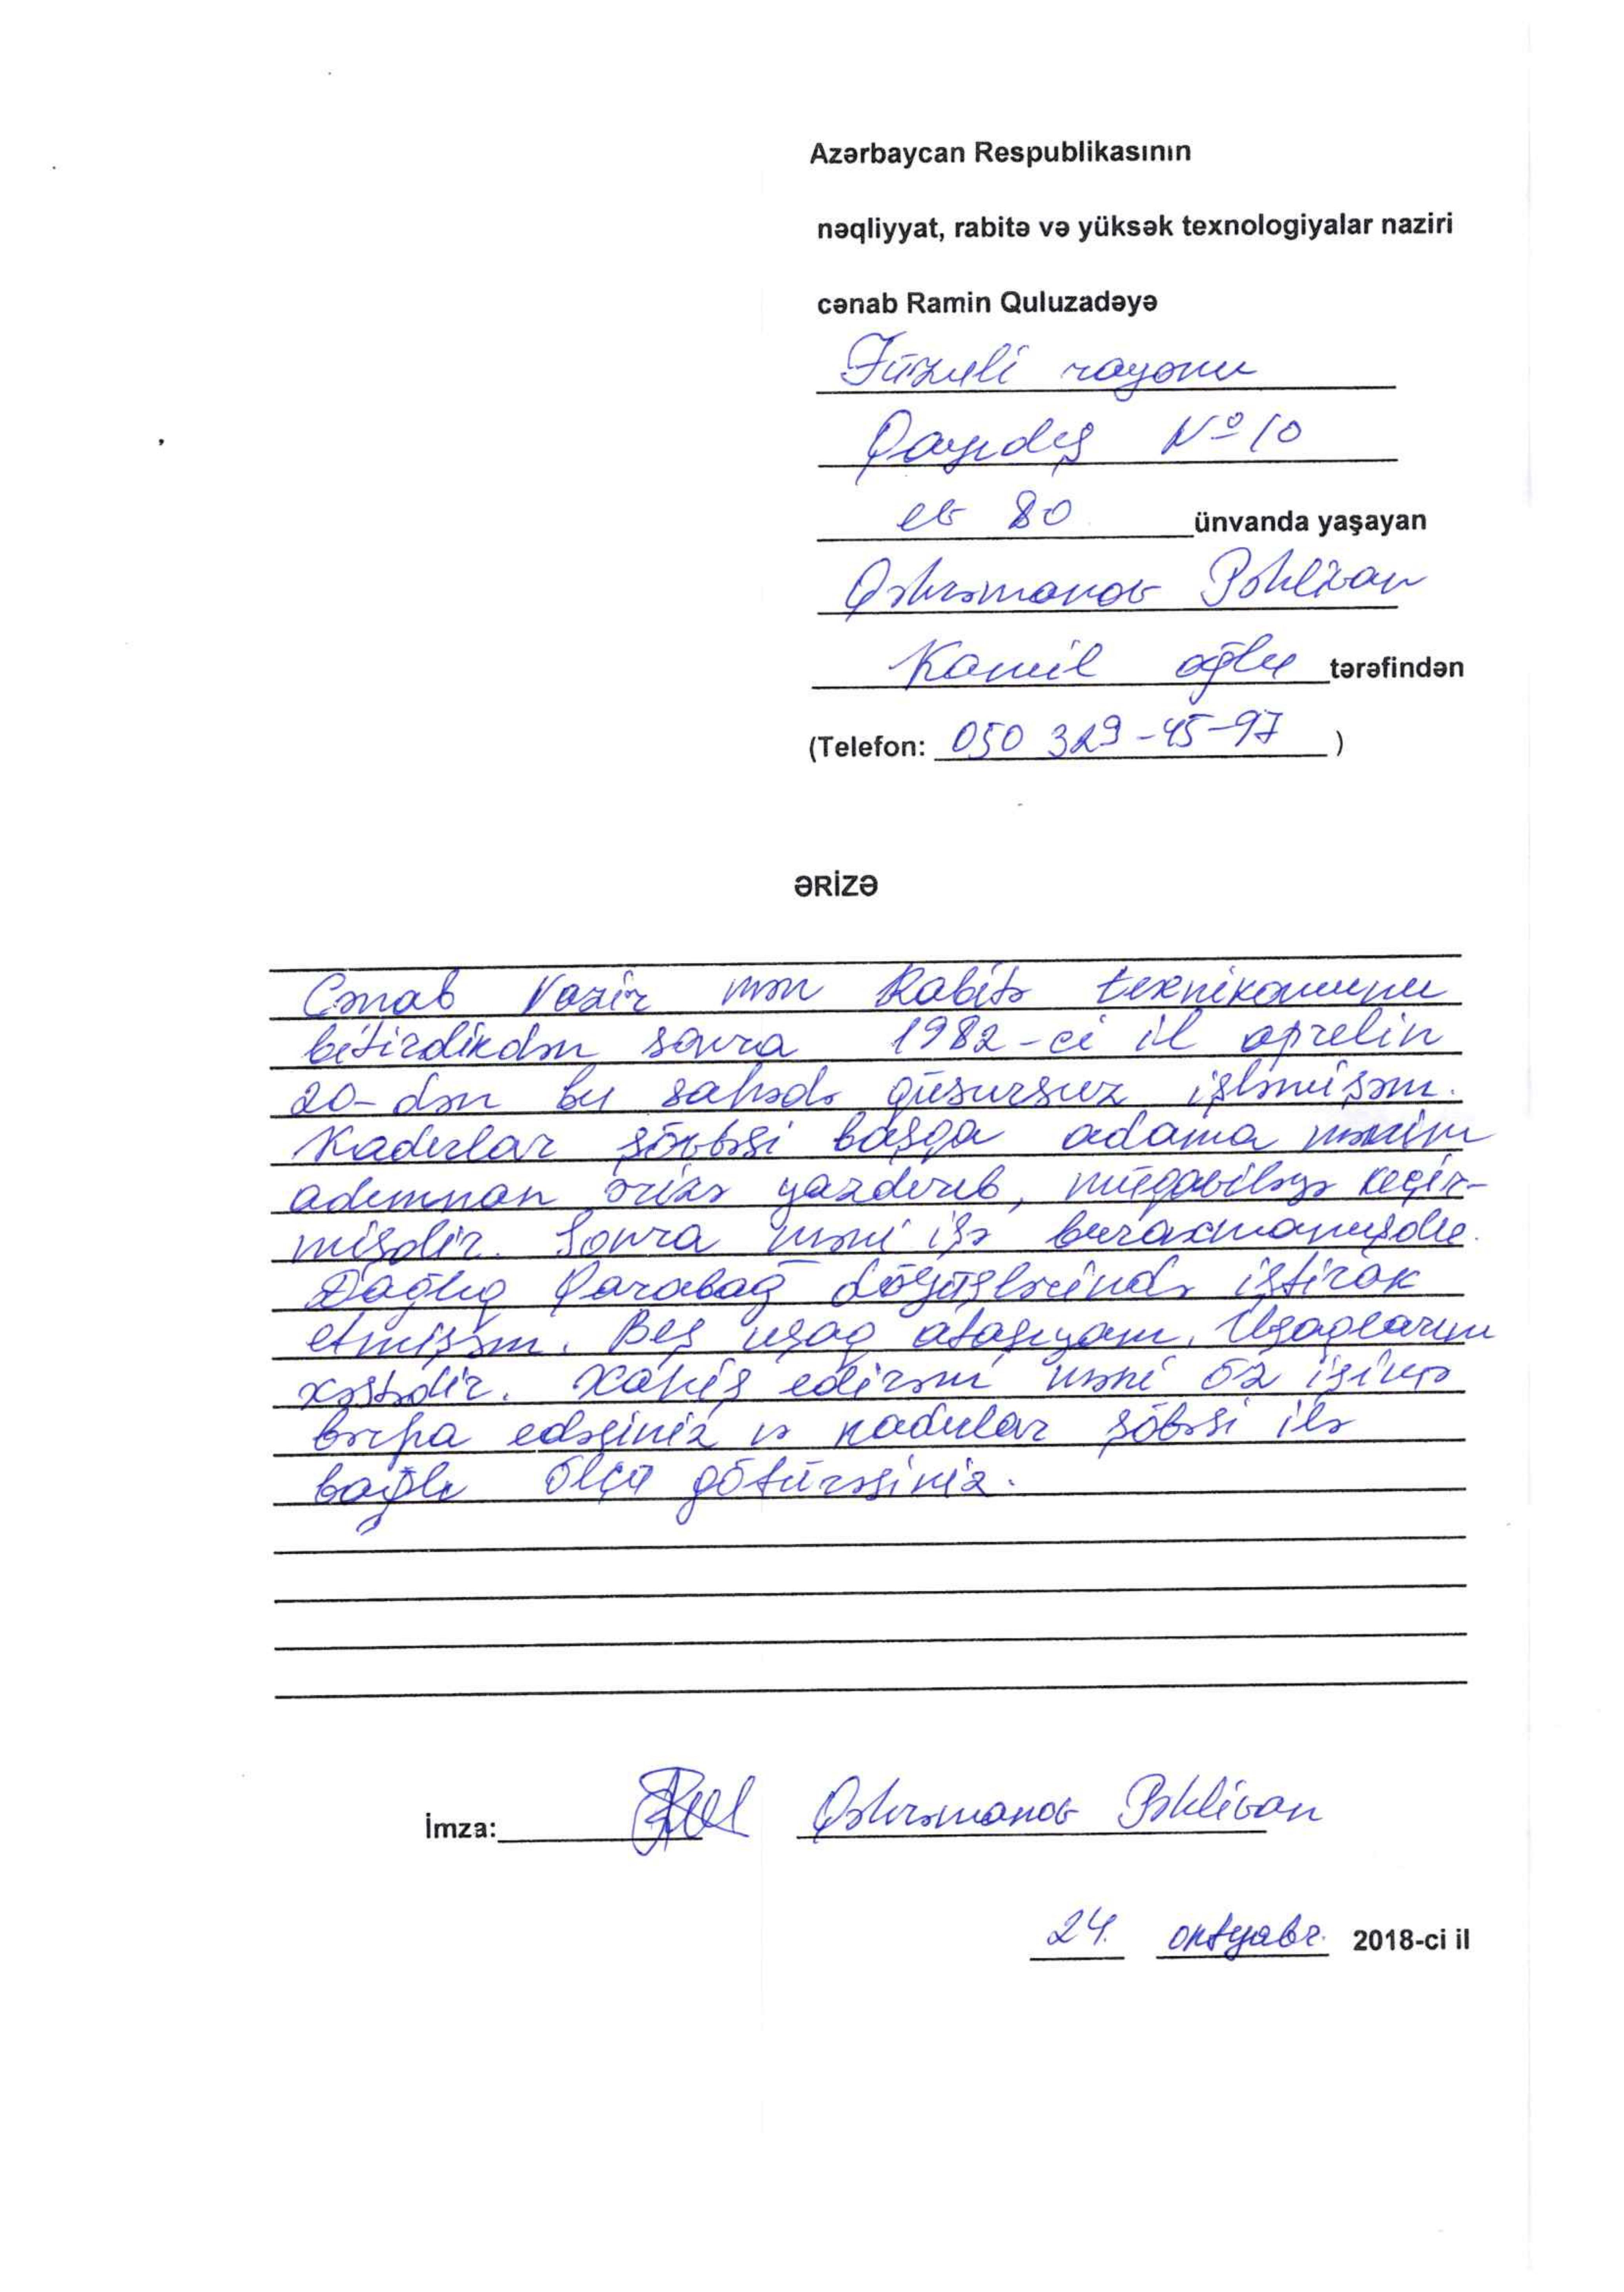 Azərbaycan Respublikasının
nəqliyyat, rabitə və yüksək texnologiyalar naziri
cənab Ramin Quluzadəyə
Füzuli rayonu
Qayıdış №10
ev 80 ünvanda yaşayan
Qəhrəmanov Pəhlivan
Kamil oğlu tərəfindən
(Telefon: 050 329-45-97 )
ƏRİZƏ
Cənab Nazir mən Rabitə texnikomunu
bitirdikdən sonra 1982-ci il aprelin
20-dən bu sahədə qüsursuz işləmişəm.
Kadırlar şövbəsi başqa adama mənim
adımnan ərizə yazdırıb, müqaviləyə keçir-
mişdir. Sonra məni işə buraxmamışdı.
Dağlıq Qarabağ döyüşlərində iştirak
etmişəm. Beş uşaq atasıyam. Uşaqlarım
xəstədir. Xahiş edirəm məni öz işimə
bərpa edəsiniz və kadırlar şöbəsi ilə
bağlı ölçü götürəsiniz.
İmza: Qəhrəmanov Pəhlivan
24. oktyabr. 2018-ci il